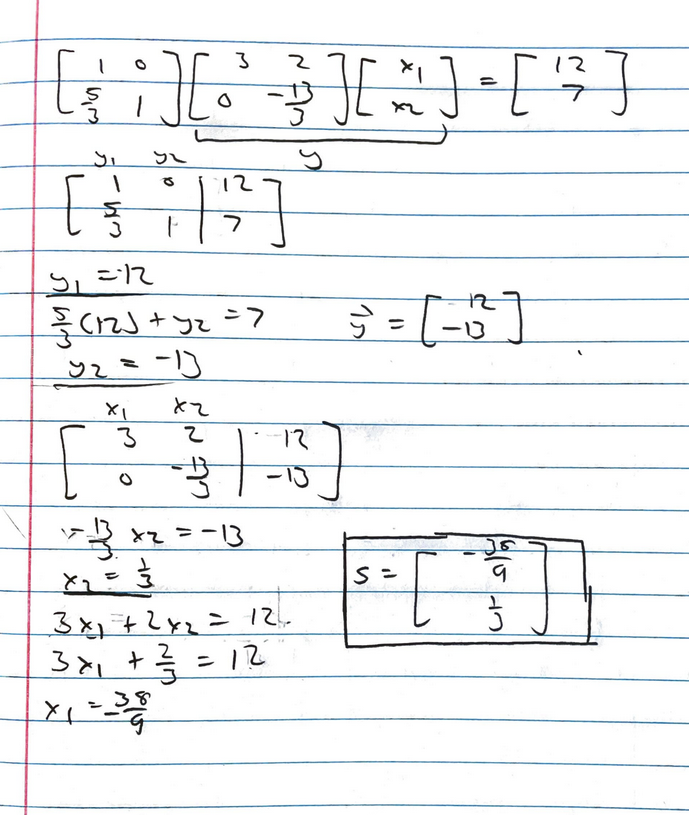 [1 0; 5/3 1] [3 2; 0 -13/3] [x1; x2] = [12; 7]
y
y1 y2
[1 0 | 12; 5/3 1 | 7]
y1 = 12
5/3 (12) + y2 = 7
y2 = -13
y⃗ = [12; -13]
x1 x2
[3 2 | 12; 0 -13/3 | -13]
-13/3 x2 = -13
x2 = 1/3
3x1 + 2x2 = 12
3x1 + 2/3 = 12
x1 = -38/9
S = [-38/9; 1/3]